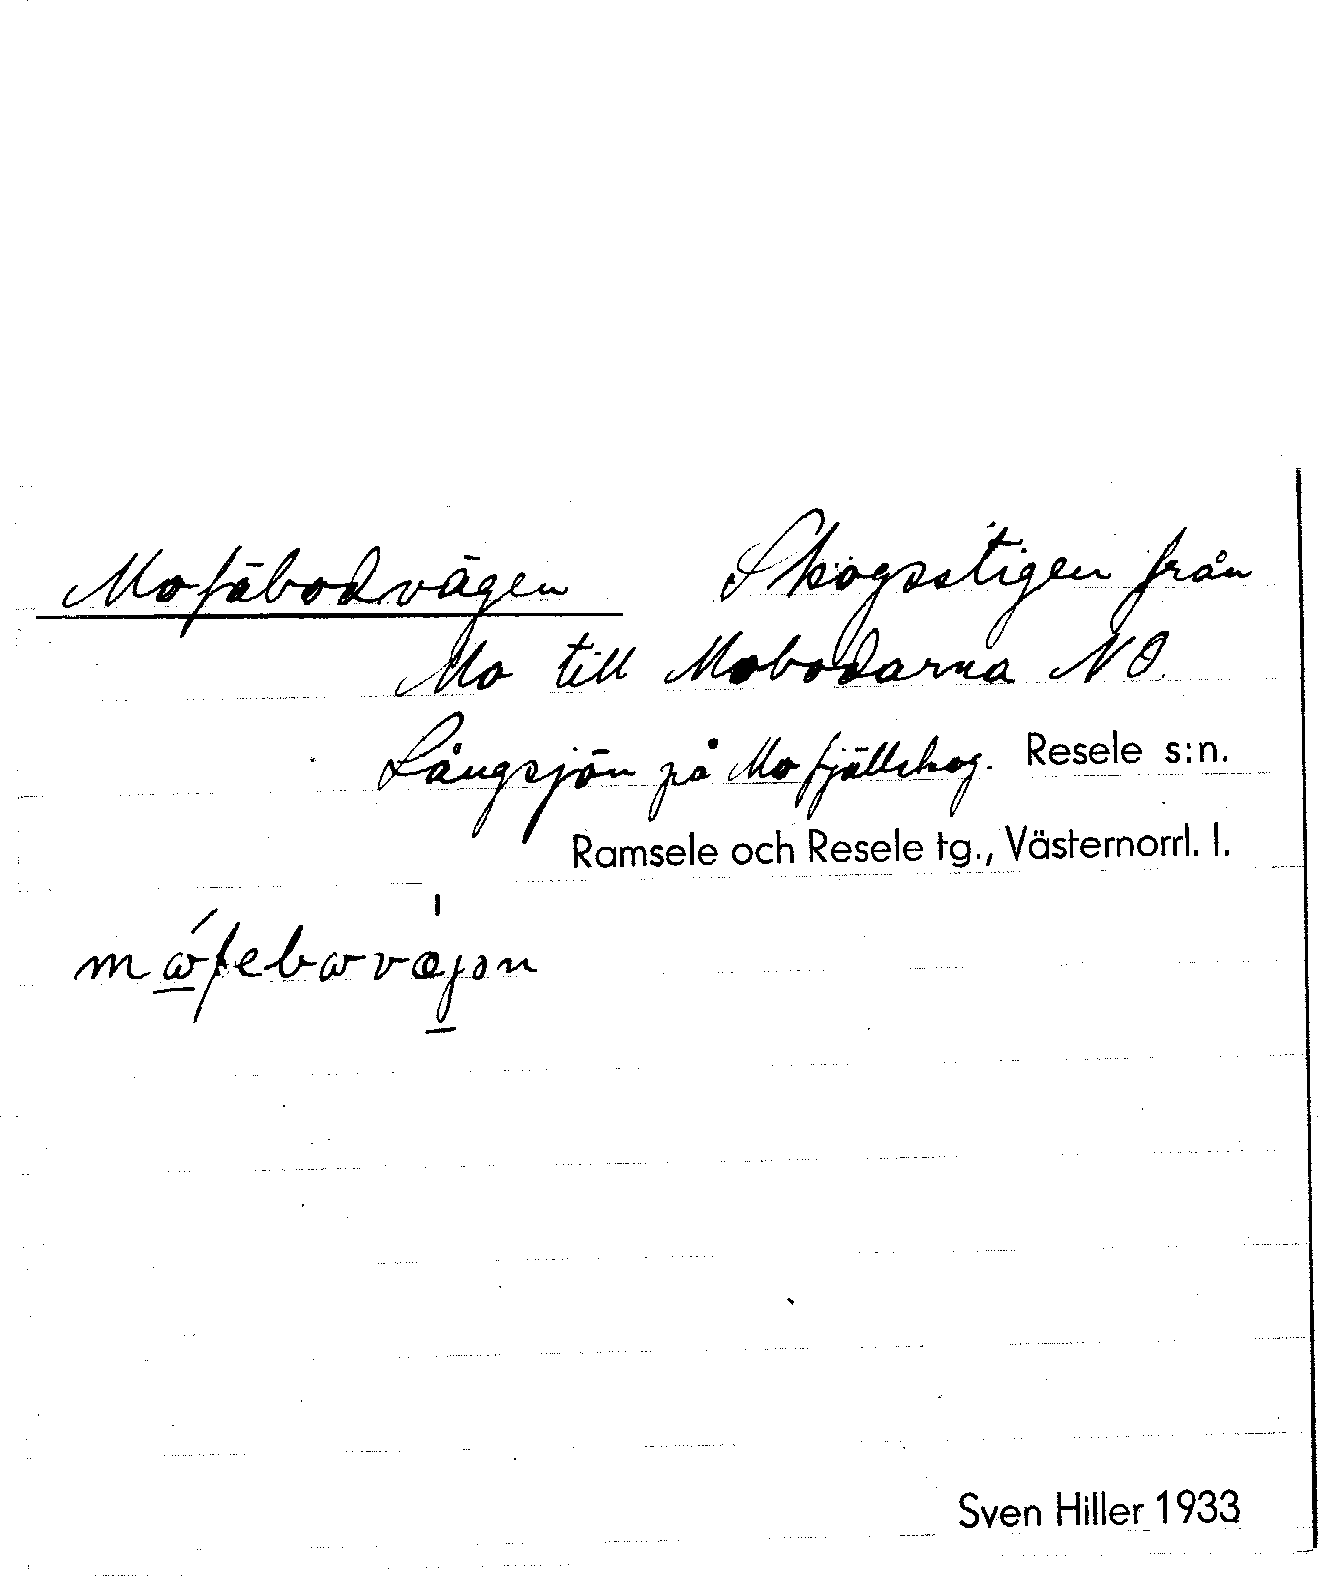 Mofäbodvägen Skogsstigen från
Mo till Mobodarna NO
Långsjön på Mo fjällskog. Resele s:n.
Ramsele och Resele tg., Västernorrl. l.
Sven Hiller 1933